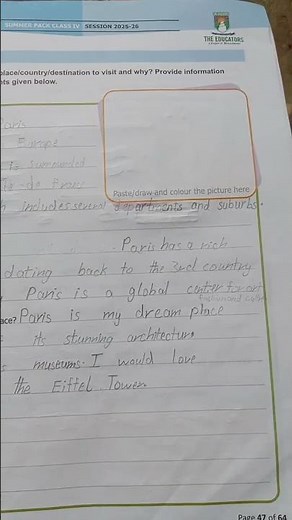 SUMMER PACK CLASS IV- SESSION 2025-26
THE EDUCATORS
place/country/destination to visit and why? Provide information
nts given below.
Paris
Europe
surrounded
Paste/draw and colour the picture here
h includes several departments and suburbs.
Paris has a rich
dating back to the 3rd country
Paris is a global center for art
fashion and culture
ace? Paris is my dream place
its stunning architecture
museums. I would love
the Eiffel Tower.
Page 47 of 64